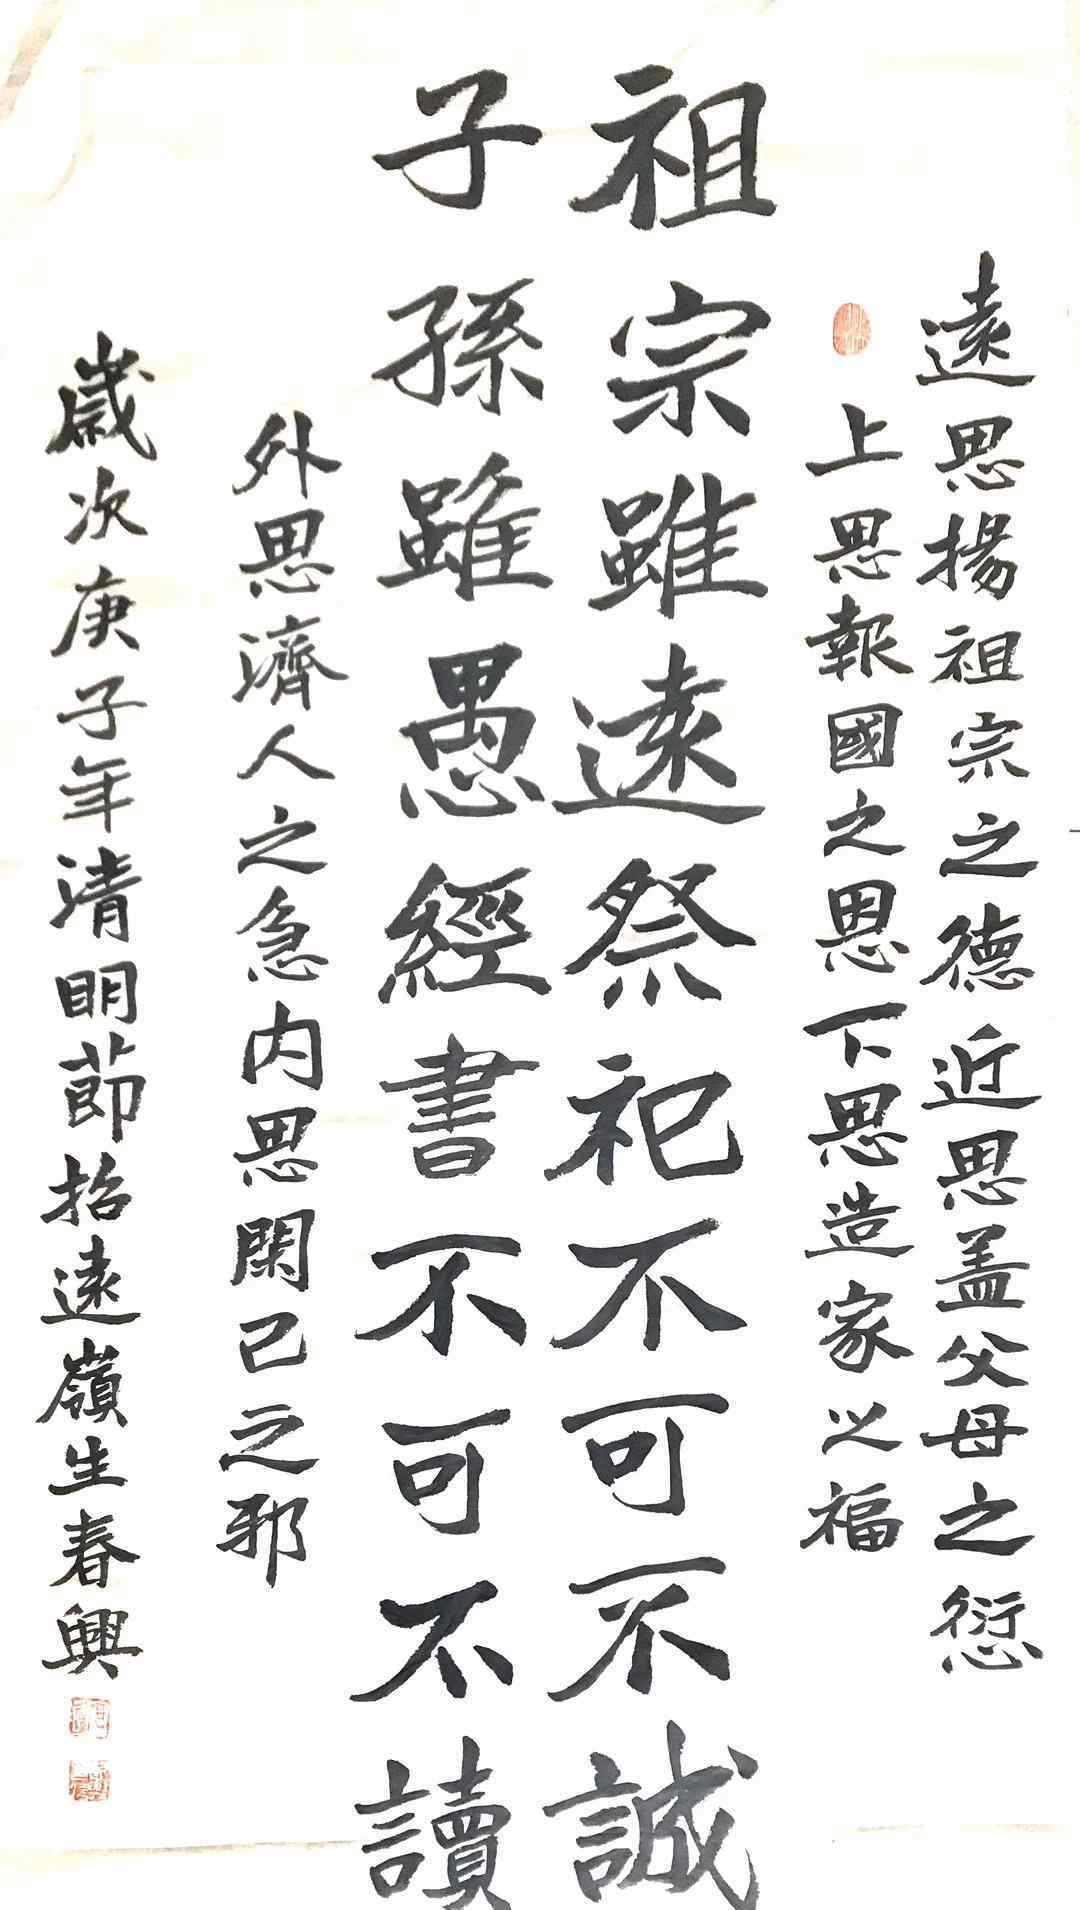 遠思揚祖宗之德近思蓋父母之愆
上思報國之恩下思造家之福
祖宗雖遠祭祀不可不誠
子孫雖愚經書不可不讀
外思濟人之急内思閑己之邪
歲次庚子年清明節招遠嶺生春興